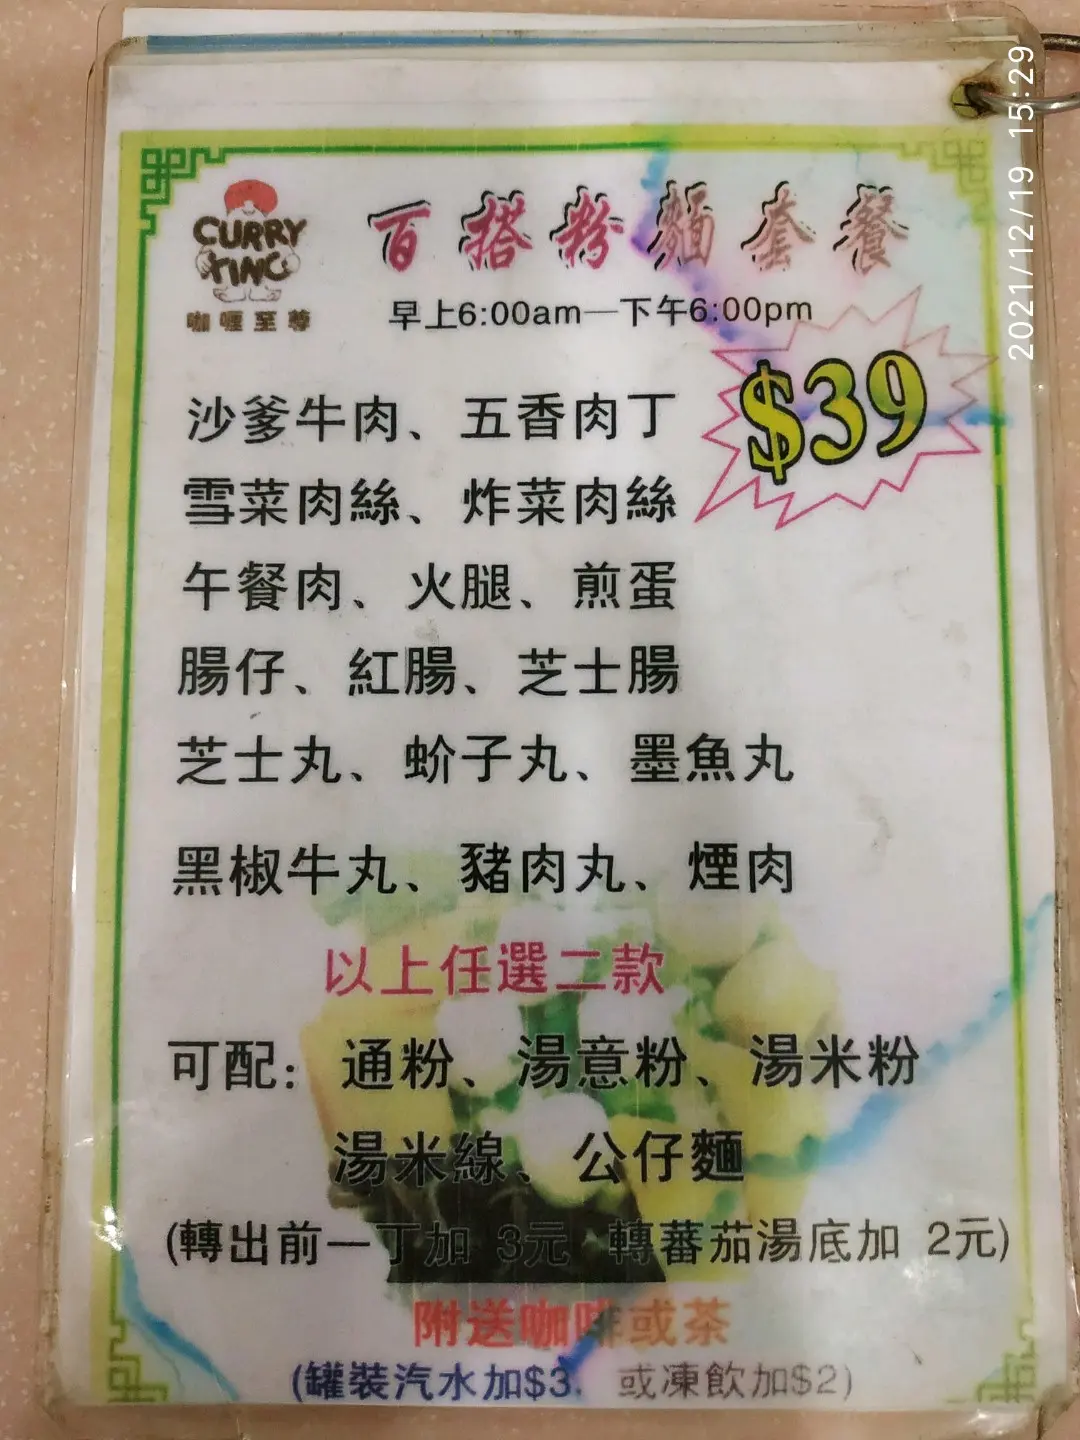 2021/12/19 15:29
CURRY
KING
咖喱至尊
百搭粉麵套餐
早上6:00am—下午6:00pm
$39
沙爹牛肉、五香肉丁
雪菜肉絲、炸菜肉絲
午餐肉、火腿、煎蛋
腸仔、紅腸、芝士腸
芝士丸、蚧子丸、墨魚丸
黑椒牛丸、豬肉丸、煙肉
以上任選二款
可配：通粉、湯意粉、湯米粉
湯米線、公仔麵
(轉出前一丁加 3元 轉蕃茄湯底加 2元)
附送咖啡或茶
(罐裝汽水加$3. 或凍飲加$2)